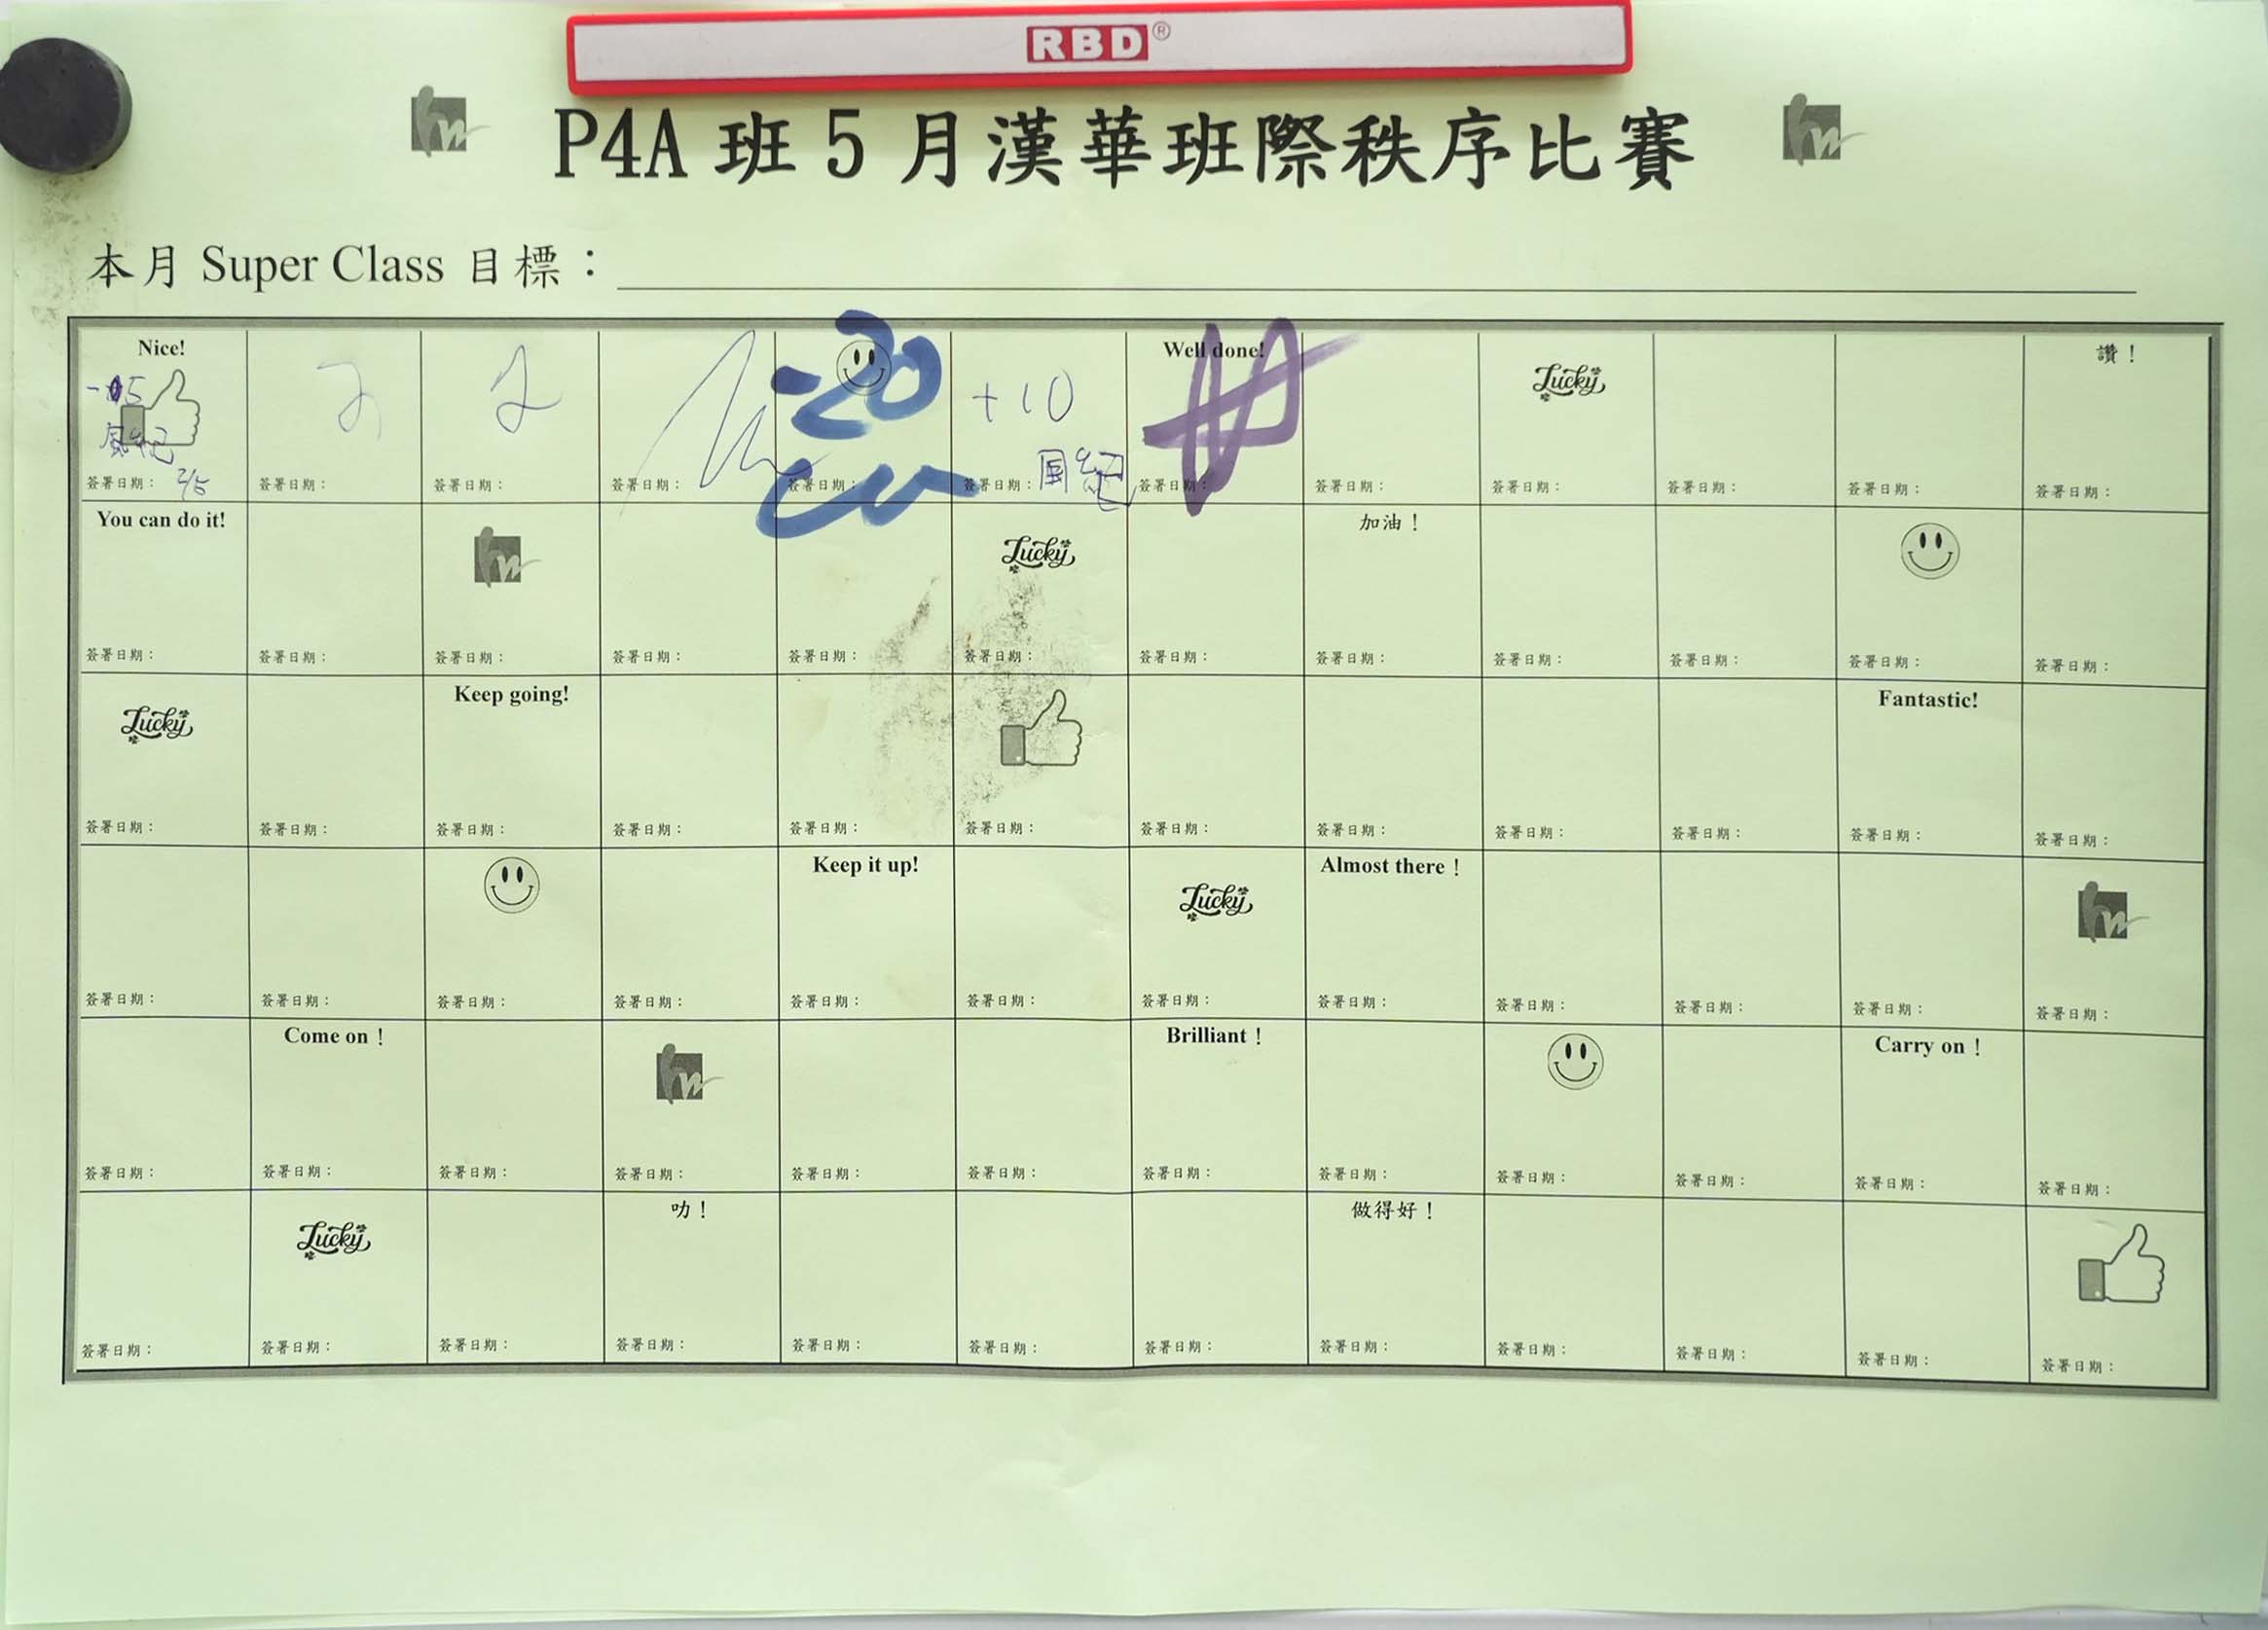 RBD®
P4A 班 5 月漢華班際秩序比賽
本月 Super Class 目標：
Nice! Well done! 讚！
Lucky
-20
+10
風紀 2/5
簽署日期： 簽署日期： 簽署日期： 簽署日期： 簽署日期： 簽署日期： 簽署日期： 簽署日期： 簽署日期： 簽署日期： 簽署日期： 簽署日期：
You can do it! 加油！
Lucky
簽署日期： 簽署日期： 簽署日期： 簽署日期： 簽署日期： 簽署日期： 簽署日期： 簽署日期： 簽署日期： 簽署日期： 簽署日期： 簽署日期：
Keep going! Fantastic!
Lucky
簽署日期： 簽署日期： 簽署日期： 簽署日期： 簽署日期： 簽署日期： 簽署日期： 簽署日期： 簽署日期： 簽署日期： 簽署日期： 簽署日期：
Keep it up! Almost there！
Lucky
簽署日期： 簽署日期： 簽署日期： 簽署日期： 簽署日期： 簽署日期： 簽署日期： 簽署日期： 簽署日期： 簽署日期： 簽署日期： 簽署日期：
Come on！ Brilliant！ Carry on！
簽署日期： 簽署日期： 簽署日期： 簽署日期： 簽署日期： 簽署日期： 簽署日期： 簽署日期： 簽署日期： 簽署日期： 簽署日期： 簽署日期：
叻！ 做得好！
Lucky
簽署日期： 簽署日期： 簽署日期： 簽署日期： 簽署日期： 簽署日期： 簽署日期： 簽署日期： 簽署日期： 簽署日期： 簽署日期： 簽署日期：